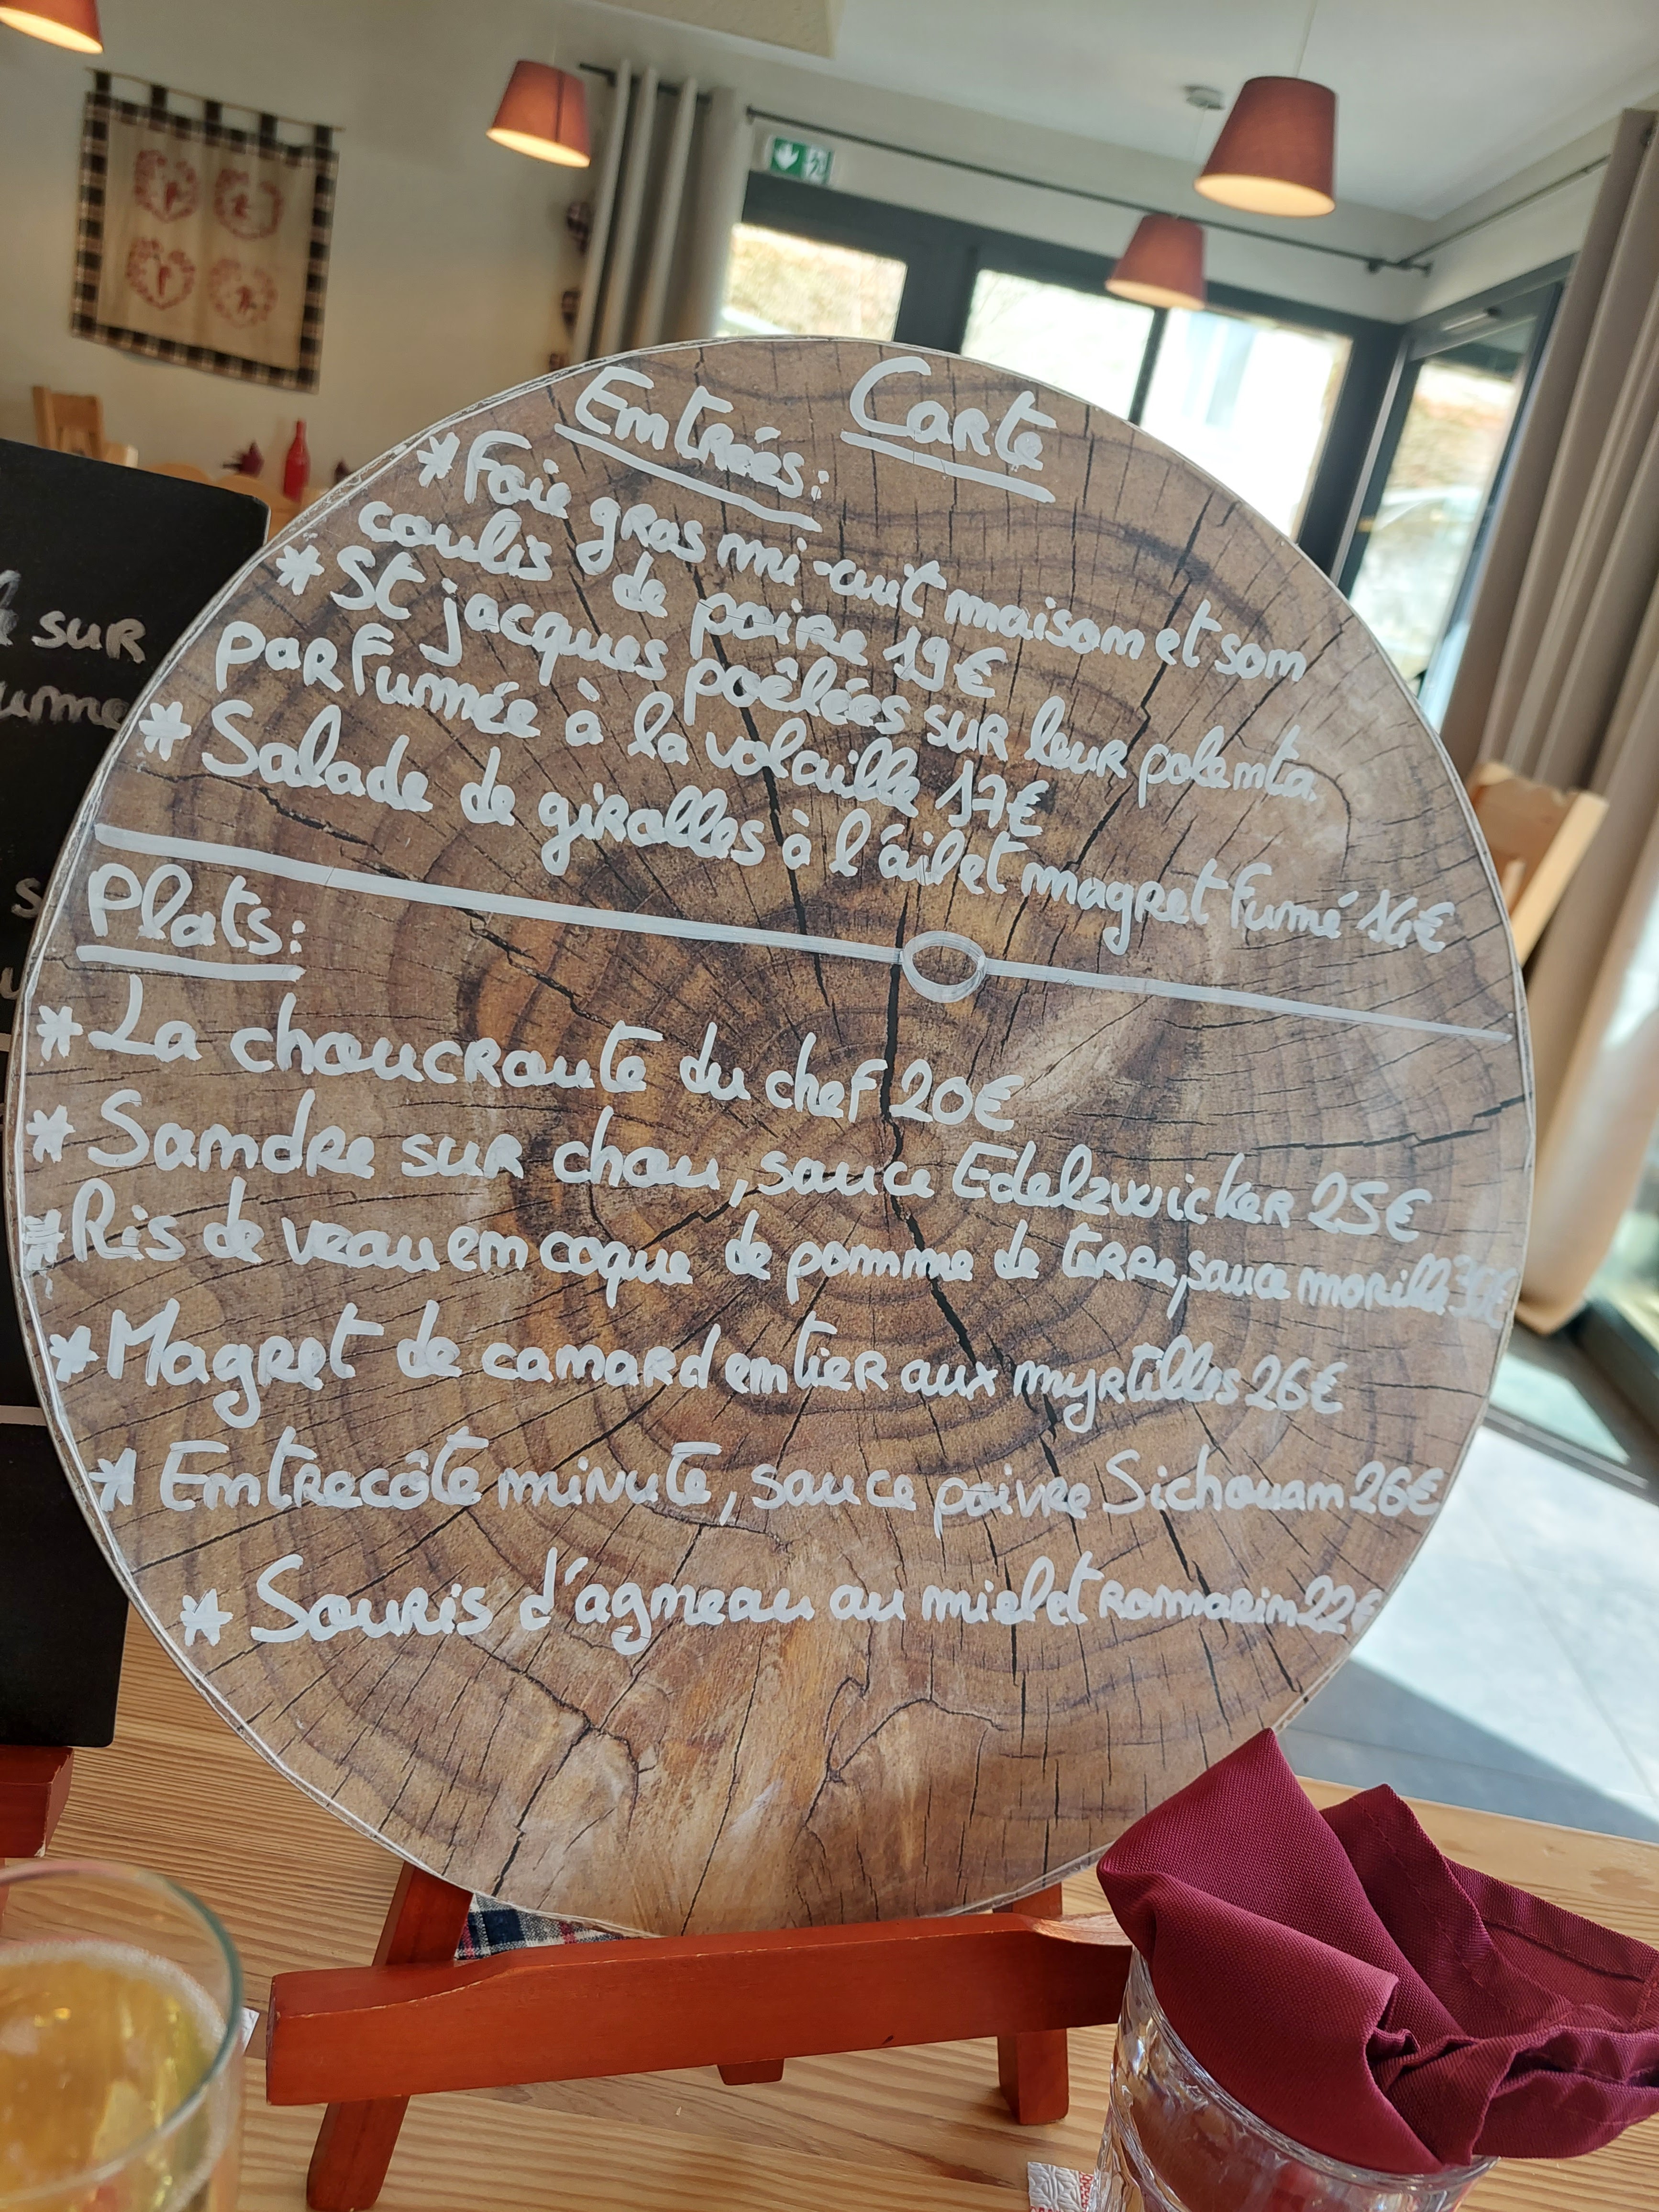 Carte
Entrées:
* Foie gras mi-cuit maison et son
coulis de poire 19€
* St jacques poêlées sur leur polenta
parfumée à la volaille 17€
* Salade de girolles à l'ail et magret fumé 14€
Plats:
* La choucroute du chef 20€
* Sandre sur chou, sauce Edelzwicker 25€
* Ris de veau en coque de pomme de terre, sauce morille
* Magret de canard entier aux myrtilles 26€
* Entrecôte minute, sauce poivre Sichouan 26€
* Souris d'agneau au miel et romarin 22€
sur